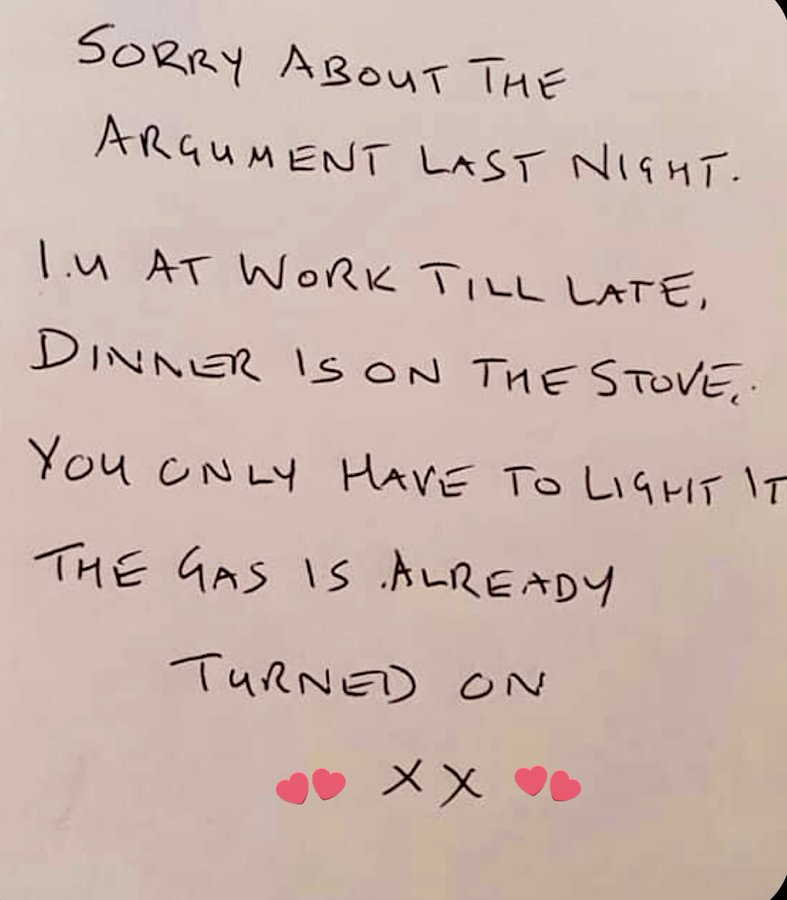 SORRY ABOUT THE
ARGUMENT LAST NIGHT.
I.M AT WORK TILL LATE,
DINNER IS ON THE STOVE,.
YOU ONLY HAVE TO LIGHT IT
THE GAS IS .ALREADY
TURNED ON
XX